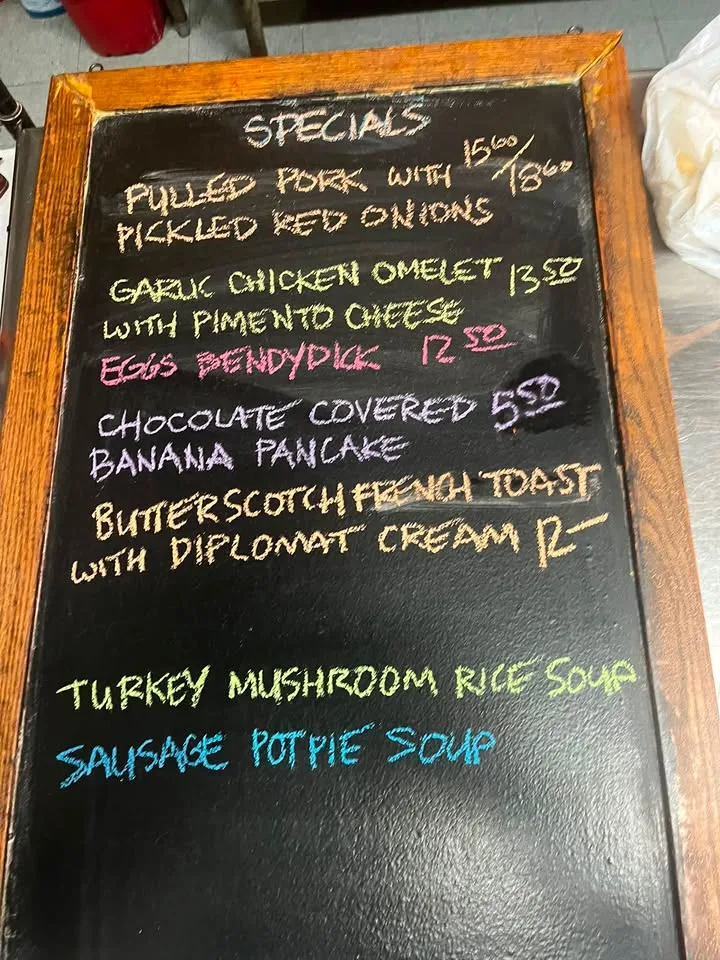 SPECIALS
PULLED PORK WITH 1500/1800
PICKLED RED ONIONS
GARLIC CHICKEN OMELET 13 50
WITH PIMENTO CHEESE
EGGS BENDYDICK 12 50
CHOCOLATE COVERED 5 50
BANANA PANCAKE
BUTTERSCOTCH FRENCH TOAST
WITH DIPLOMAT CREAM 12-
TURKEY MUSHROOM RICE SOUP
SAUSAGE POT PIE SOUP